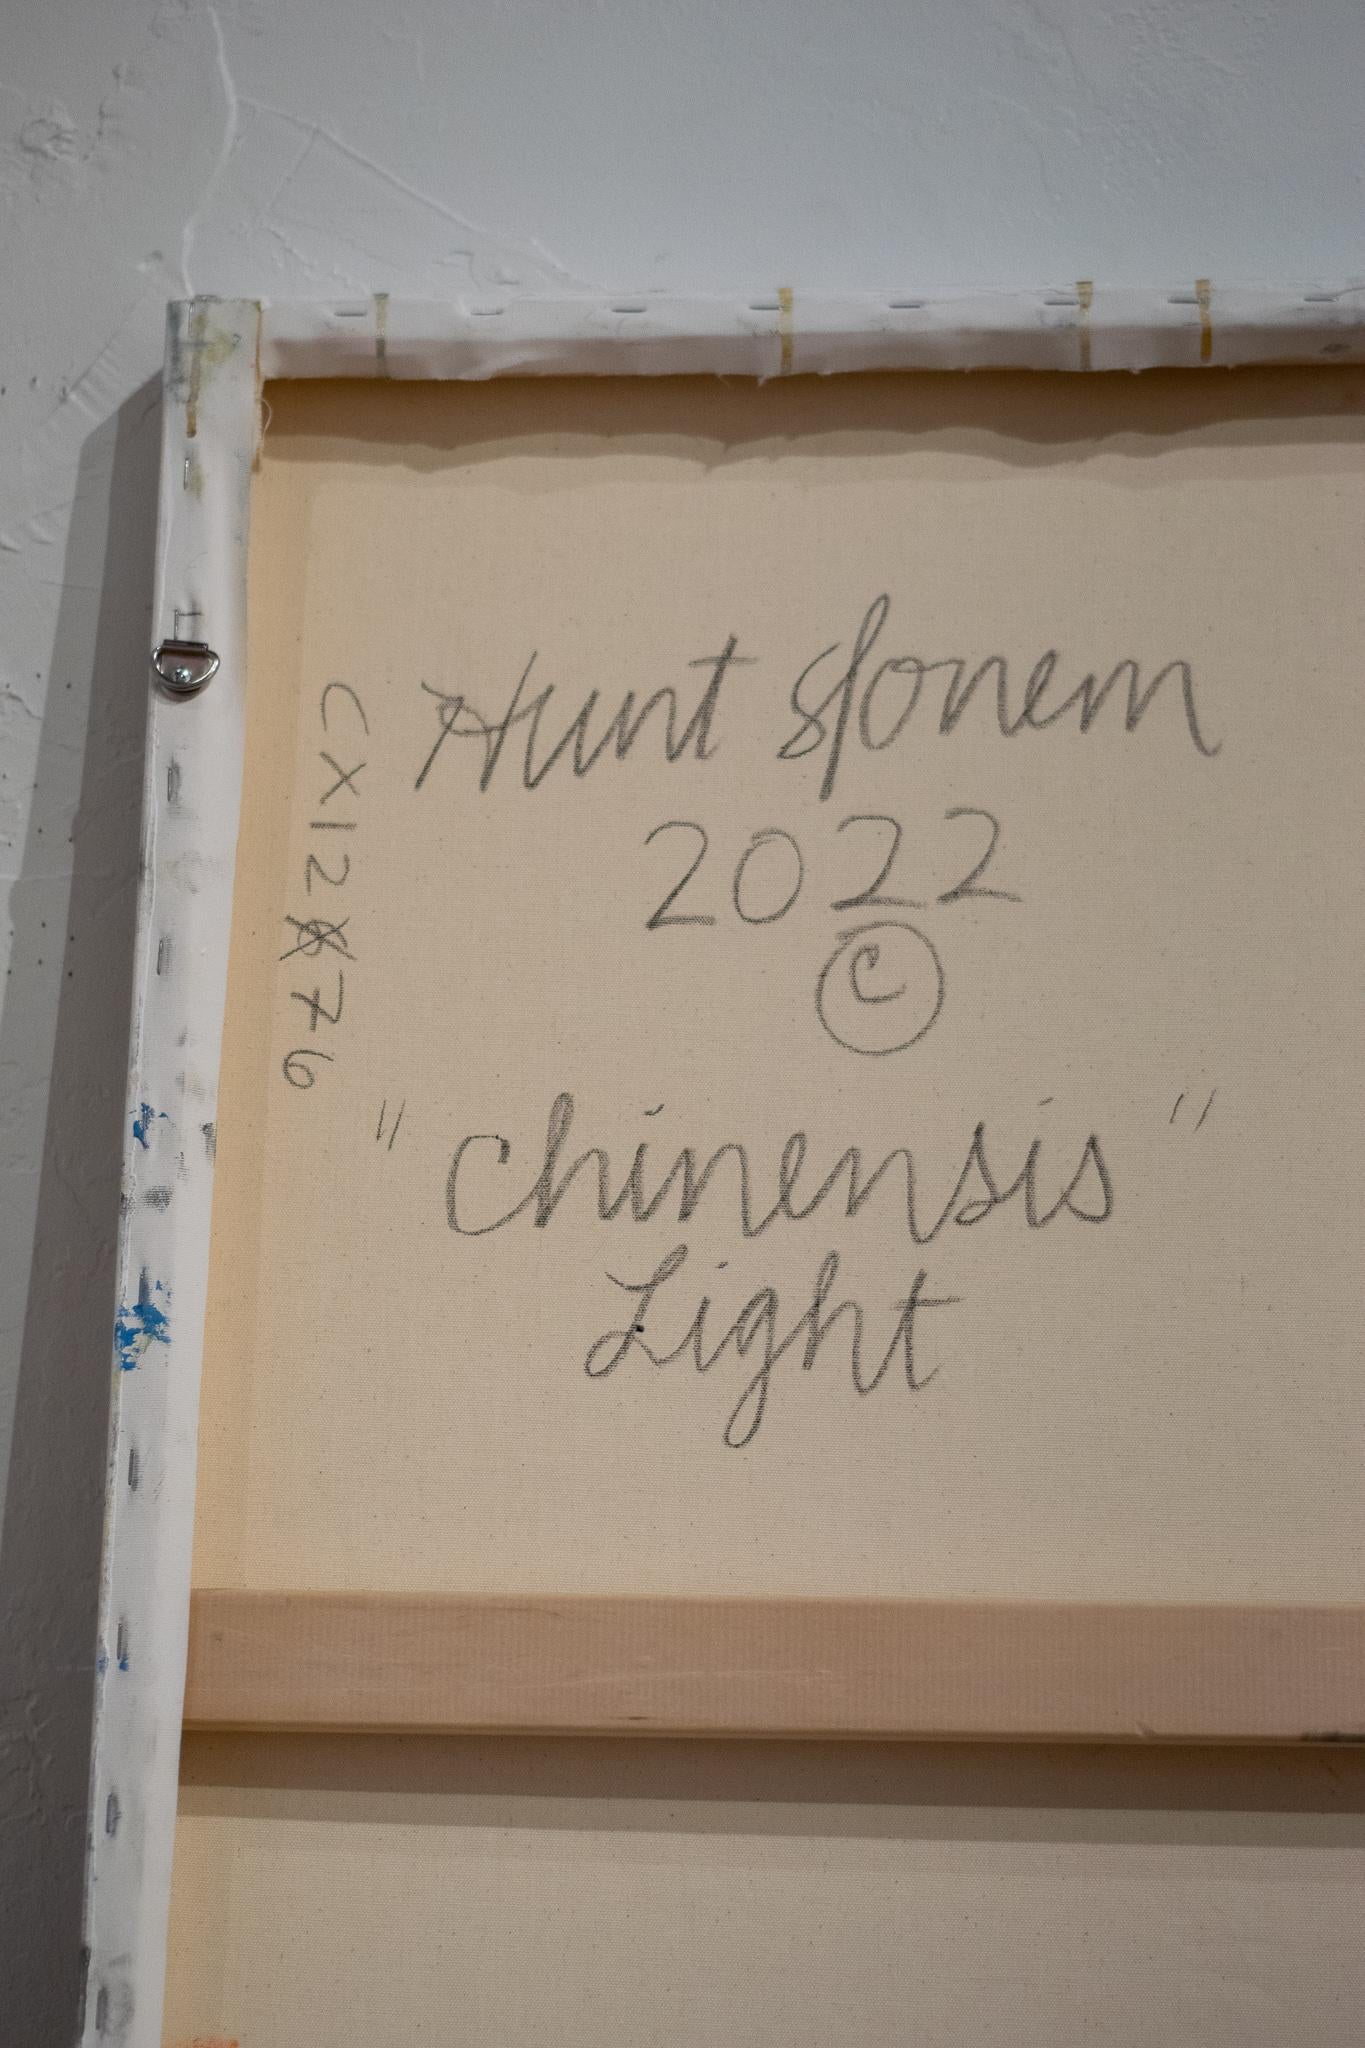 Hunt Slonem
2022
©
"Chinensis"
Light
CX1276